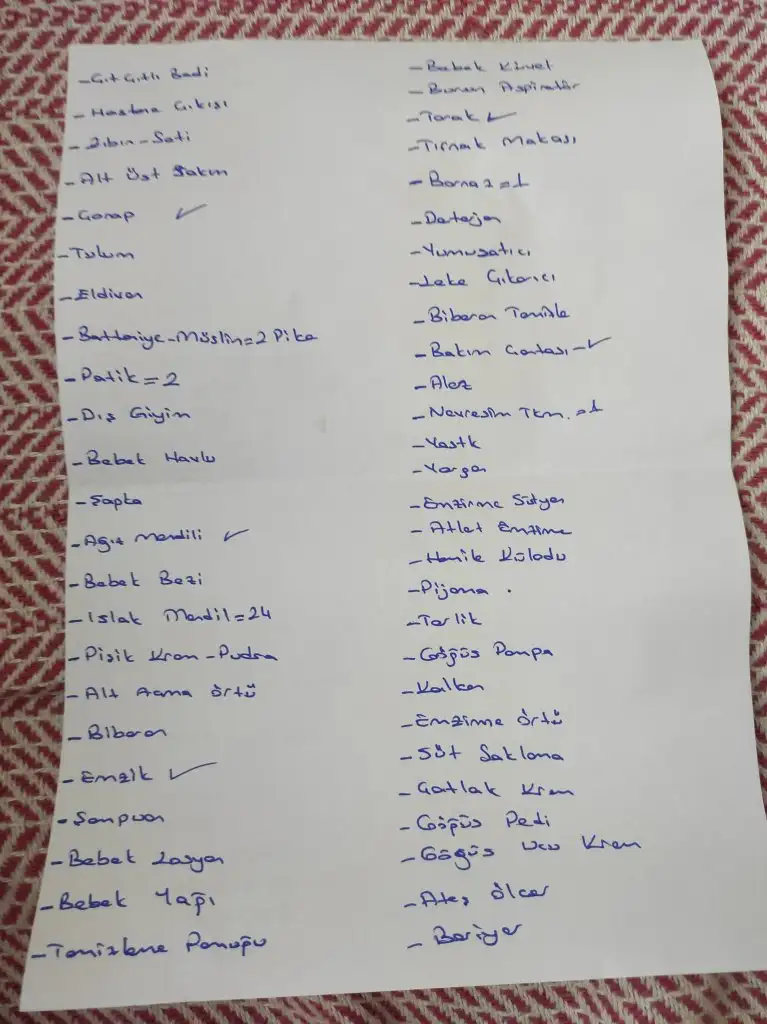 - Çıtçıtlı Badi
- Hastane Çıkışı
- Zıbın-Seti
- Alt Üst Takım
- Çorap ✓
- Tulum
- Eldiven
- Battaniye-Müslin=2 Pike
- Patik=2
- Dış Giyim
- Bebek Havlu
- Şapka
- Ağız Mendili ✓
- Bebek Bezi
- Islak Mendil=24
- Pişik Krem-Pudra
- Alt Açma Örtü
- Biberon
- Emzik ✓
- Şampuan
- Bebek Losyon
- Bebek Yağı
- Temizleme Pamuğu
- Bebek Küvet
- Burun Aspiratör
- Tarak ✓
- Tırnak Makası
- Bornoz=1
- Deterjan
- Yumuşatıcı
- Leke Çıkarıcı
- Biberon Temizle
- Bakım Çantası-✓
- Alez
- Nevresim Tkm.=1
- Yastk
- Yorgan
- Emzirme Sütyen
- Atlet Emzirme
- Hamile Külodu
- Pijama.
- Terlik
- Göğüs Pompa
- Kalkan
- Emzirme Örtü
- Süt Saklama
- Çatlak Krem
- Göğüs Pedi
- Göğüs Ucu Krem
- Ateş Ölçer
- Bariyer